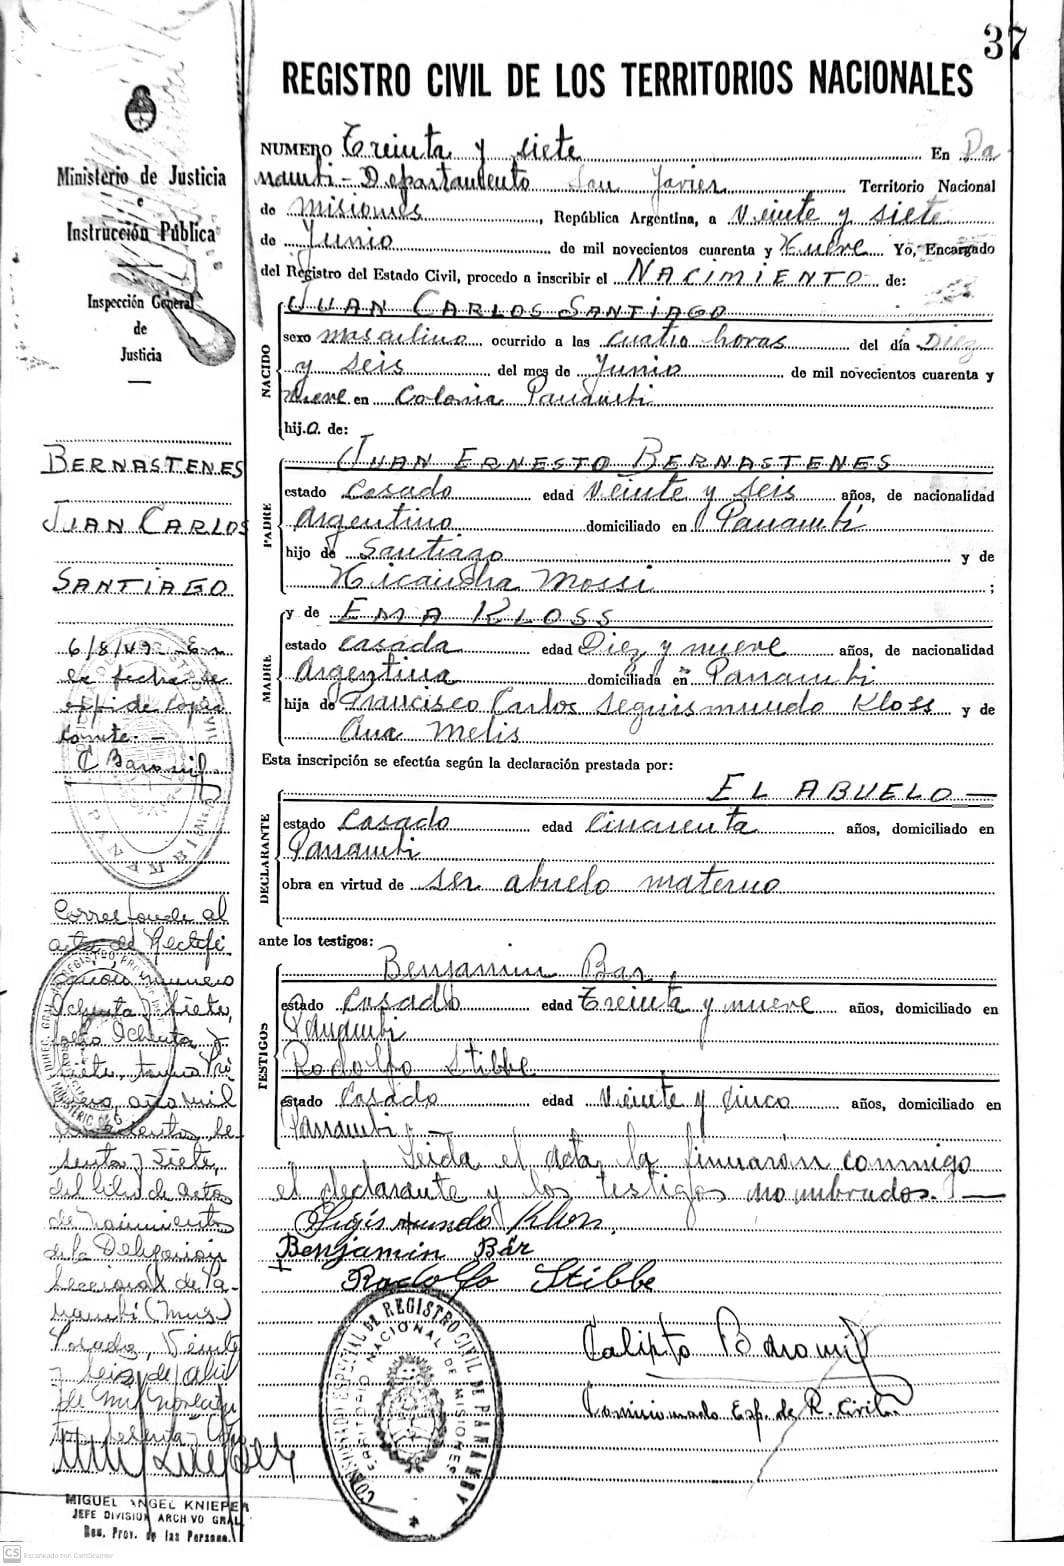 37
REGISTRO CIVIL DE LOS TERRITORIOS NACIONALES
Ministerio de Justicia
e
Instrucción Pública
Inspección General
de
Justicia
BERNASTENES
JUAN CARLOS
SANTIAGO
6/8/49 En
la fecha se
expide copia
Correshonde al
acta de Rectifi
cación número
Ochenta y Siete,
folio Ochenta y
Siete, tomo Pri
mero, año mil
novecientos se
senta y Siete,
del libro de actas
de nacimientos
de la Delegación
Seccional de Pa-
nambí (Mnes)
Posadas, Veinte
y seis de abril
de mil novecien
tos sesenta y
MIGUEL ANGEL KNIEPER
JEFE DIVISION ARCHIVO GRAL
Reg. Prov. de las Personas
NUMERO Treinta y siete En Pa
nambi - Departamento San Javier Territorio Nacional
de Misiones, República Argentina, a Veinte y siete
de Junio de mil novecientos cuarenta y Nueve Yo, Encargado
del Registro del Estado Civil, procedo a inscribir el NACIMIENTO de:
NACIDO
JUAN CARLOS SANTIAGO
sexo masculino ocurrido a las cuatro horas del día Diez
y seis del mes de Junio de mil novecientos cuarenta y
nueve en Colonia Panambi
hijo de:
PADRE
JUAN ERNESTO BERNASTENES
estado Casado edad Veinte y seis años, de nacionalidad
Argentino domiciliado en Panambí
hijo de Santiago y de
Mossi ;
MADRE
y de EMA KLOSS
estado casada edad Diez y nueve años, de nacionalidad
Argentina domiciliada en Panambi
hija de Francisco Carlos Seguismundo Kloss y de
Ana Melis
Esta inscripción se efectúa según la declaración prestada por:
DECLARANTE
EL ABUELO —
estado Casado edad Cincuenta años, domiciliado en
Panambi
obra en virtud de ser abuelo materno
ante los testigos:
TESTIGOS
Benjamin Bar
estado Casado edad Treinta y nueve años, domiciliado en
Panambi
Rodolfo Stibbe
estado Casado edad Veinte y cinco años, domiciliado en
Panambi -
Leida el acta, la firmaron conmigo
el declarante y los testigos nombrados. —
Benjamin Bär
Rodolfo Stibbe
Calipto
Comisionado Esp. de R. Civil
COMISARIO ESPECIAL DE REGISTRO CIVIL DE PANAMBY
TERRITORIO NACIONAL DE MISIONES
CS Escaneado con CamScanner